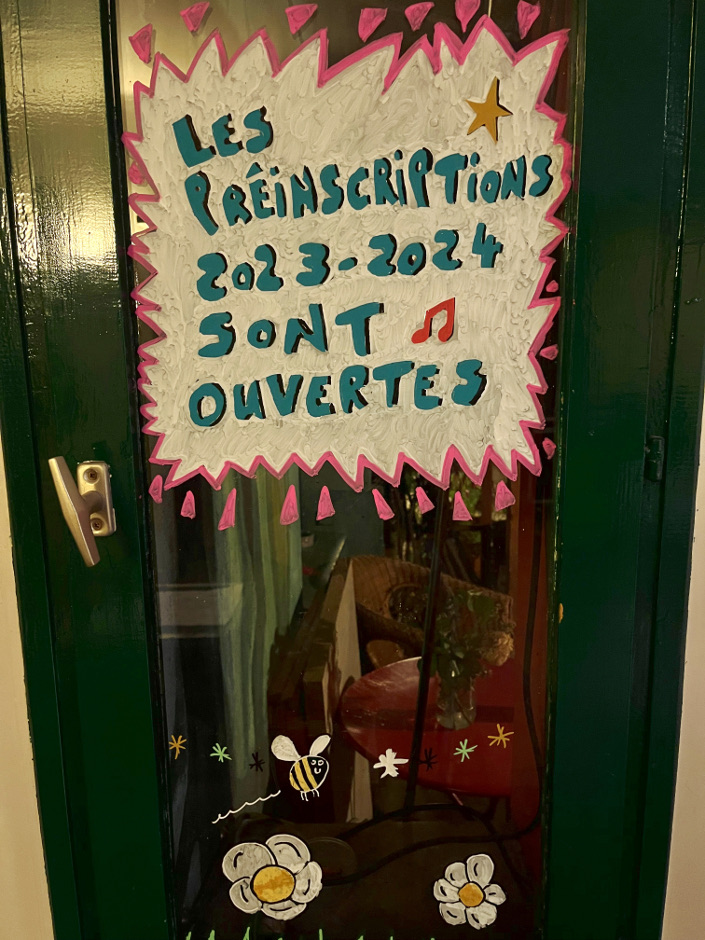 LES
PRÉINSCRIPTIONS
2023-2024
SONT
OUVERTES